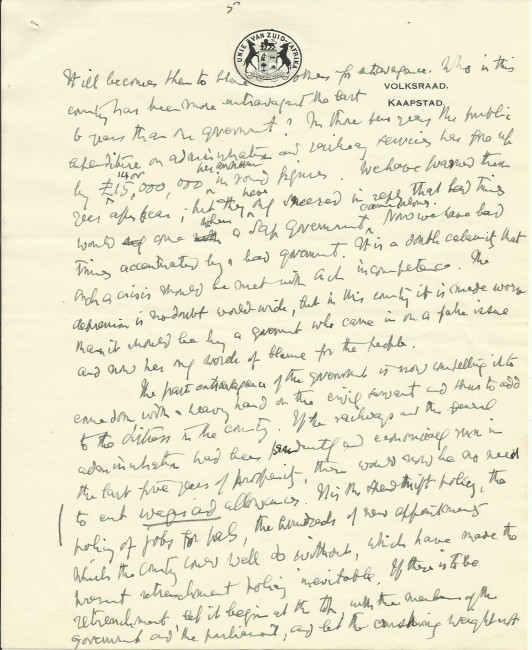 5
UNIE VAN ZUID-AFRIKA
VOLKSRAAD.
KAAPSTAD.
It ill becomes them to blame others for extravagance. Who in this
country has been more extravagant the last
6 years than our government? In those years the public
expenditure on administration and railway services has gone up
by £15,000,000 in round figures. We have warned them
14 or
per annum
year after year, but they only sneered in reply that bad times
have
would come a Sap Government. Now we have bad
when
times accentuated by a bad government. It is a double calamity that
such a crisis should be met with such incompetence. The
depression is no doubt world-wide, but in this country it is made worse
than it should be by a government who came in on a false issue
and now has only words of blame for the people.
The past extravagance of the government is now compelling it to
come down with a heavy hand on the civil servant and thus to add
to the distress in the country. If the railways and the general
administration had been prudently and economically run in
the last five years of prosperity, there would now be no need
to cut wages and allowances. It is the spendthrift policy, the
policy of jobs for pals, the hundreds of new appointments
which the country could well do without, which have made the
present retrenchment policy inevitable. If there is to be
retrenchment, let it begin at the top, with the members of the
government and the parliament, and let the crushing weight not